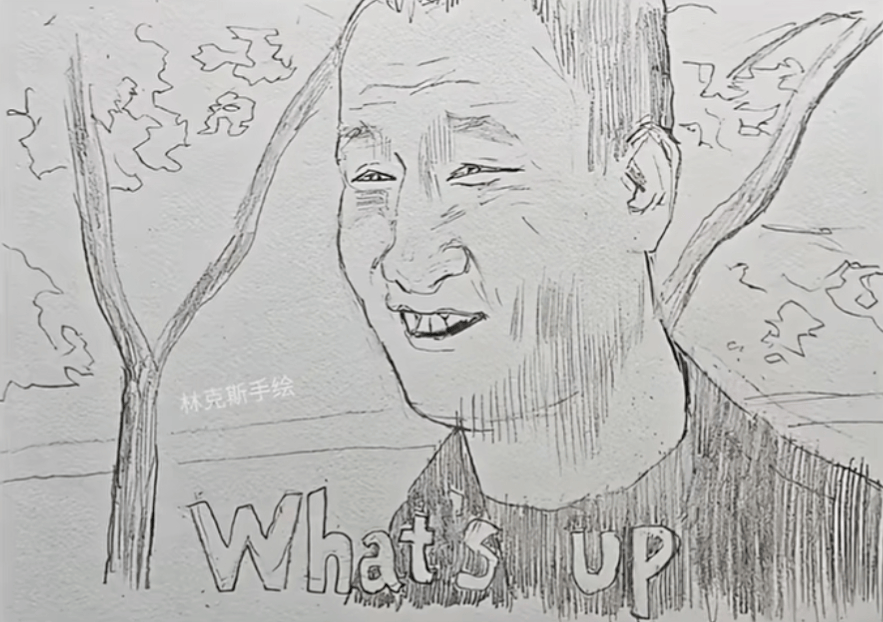 林克斯手绘
What's up